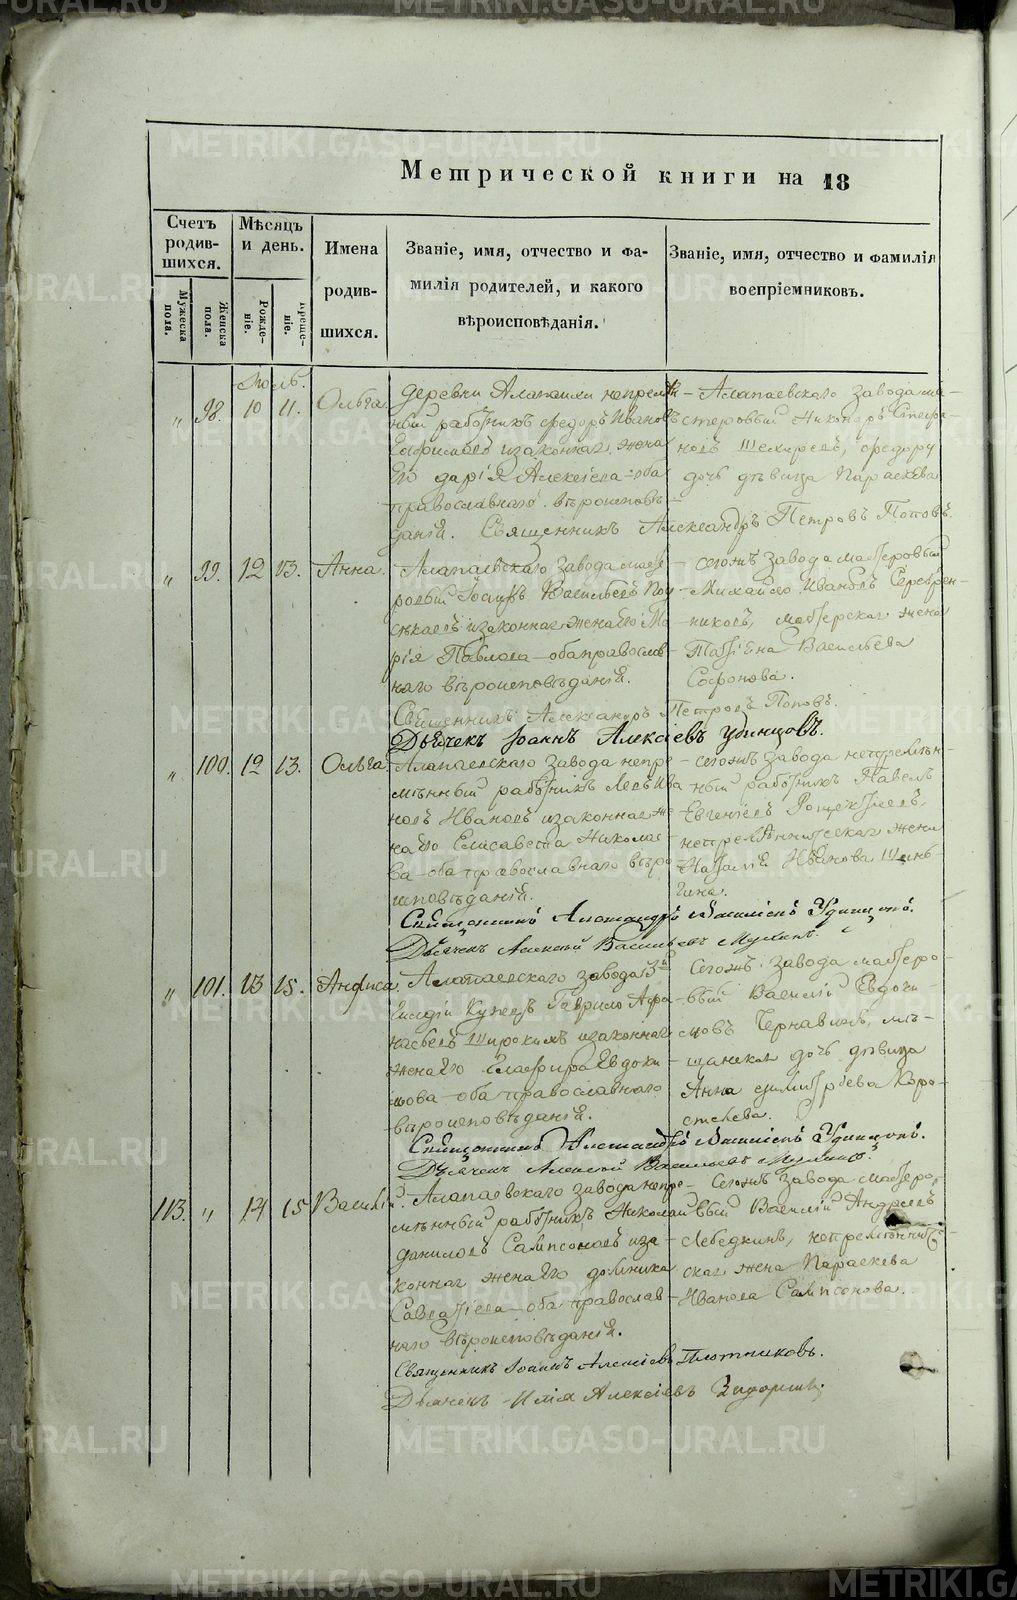 Метрической книги на 18
Счетъ родив-шихся.
Мѣсяцъ и день.
Имена родив-шихся.
Званіе, имя, отчество и фа-
милія родителей, и какого
вѣроисповѣданія.
Званіе, имя, отчество и фамилія
воспріемниковъ.
Мужеска пола.
Женска пола.
Рожде-ніе.
Креще-ніе.
Іюль.
„ 98. 10 11. Ольга
деревни Алапаихи непремѣ
ный работникъ Федоръ Ивановъ
и законная жена
его Дарія Алексіева – оба
православнаго вѣроисповѣ-
данія. Священникъ Александръ Петровъ Поповъ.
– Алапаевскаго завода ма-
стеровый Никаноръ Стефа-
новъ
дочь дѣвица Параскева
„ 99. 12 13. Анна.
Алапаевскаго завода масте
ровый Іосифъ Васильевъ
и законная жена его Ма
рія Павлова – оба православ-
наго вѣроисповѣданія.
Священникъ Александръ Петровъ Поповъ.
Дьячекъ Іоаннъ Алексіевъ Удинцовъ.
– тогожъ завода мастеровый
Михайло Ивановъ Серебрен-
никовъ, мастерская жена
Татіяна Васильева
Софонова.
„ 100. 12 13. Ольга
Алапаевскаго завода непре
мѣнный работникъ
новъ Ивановъ и законная же-
на его Елисавета Николае-
ва – оба православнаго вѣро
исповѣданія.
Священникъ Александръ Удинцовъ.
Дьячекъ Алексѣй Васильевъ
– тогожъ завода непремѣн-
ный работникъ Павелъ
Евгеніевъ
жена
Наталія Иванова
„ 101. 13 15. Анфиса
Алапаевскаго завода
Гаврило Афа-
насьевъ Широкихъ и законная
жена его Глафира Евдоки-
мова – оба православнаго
вѣроисповѣданія.
Священникъ Александръ Удинцовъ.
Дьячекъ Алексѣй Васильевъ
тогожъ завода мастеро-
вый Василій Евдоки-
мовъ Чернавинъ, мѣ-
щанская дочь дѣвица
Анна Димитріева Коро-
стелева.
113. „ 14 15 Василій.
Алапаевскаго завода непре-
мѣнный работникъ Николай
Даниловъ Сампсоновъ и за-
конная жена его Домника
Савватіева – оба православ-
наго вѣроисповѣданія.
Священникъ Іоаннъ Алексіевъ Плотниковъ.
Дьячекъ Илія Алексіевъ
– тогожъ завода мастеро-
вый Василій Андреевъ
Лебедкинъ, непремѣнни-
ская жена Параскева
Иванова Сампсонова.
METRIKI.GASO-URAL.RU